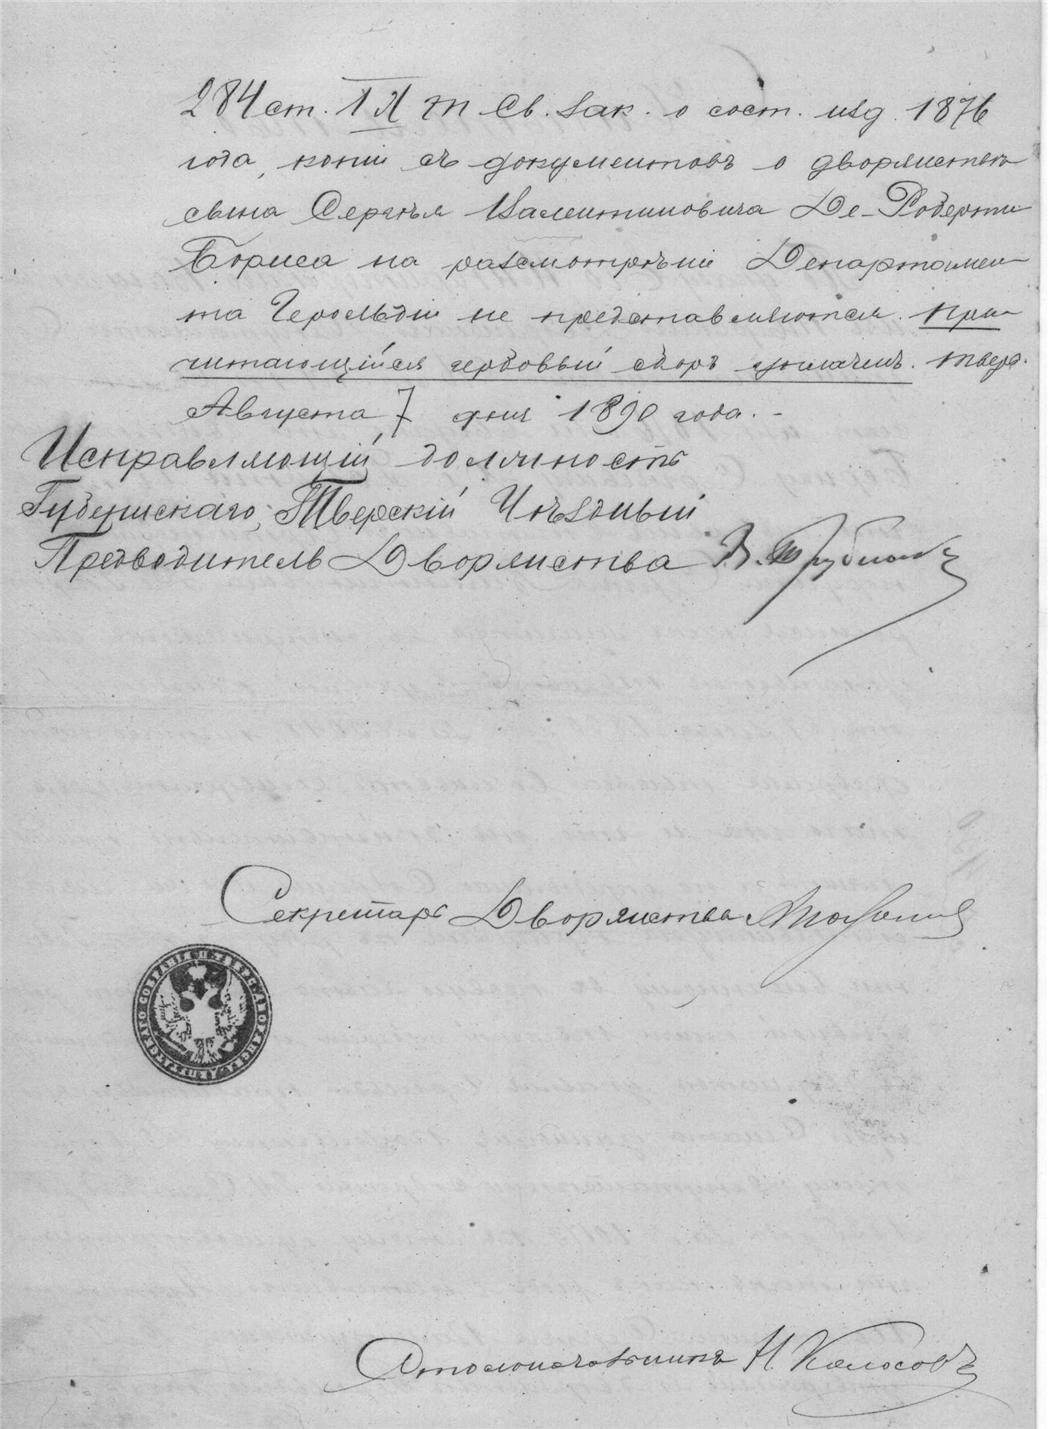 284 ст. IX т Св. Зак. о сост. изд. 1876
года, копіи съ документовъ о дворянствѣ
сына Сергѣя Валентиновича Де-Роберти
Бориса на разсмотрѣніи Департамен-
та Герольдіи не представляются. При-
читающійся гербовый сборъ уплаченъ. Тверь.
Августа 7 дня 1890 года. -
Исправляющій должность
Губернскаго, Тверскій Уѣздный
Предводитель Дворянства В.
Секретарь Дворянства
ТВЕРС. ДВОРЯНСТВА ДЕПУТАТСКАГО СОБРАНІЯ П.
Столоначальникъ Н. Колосовъ